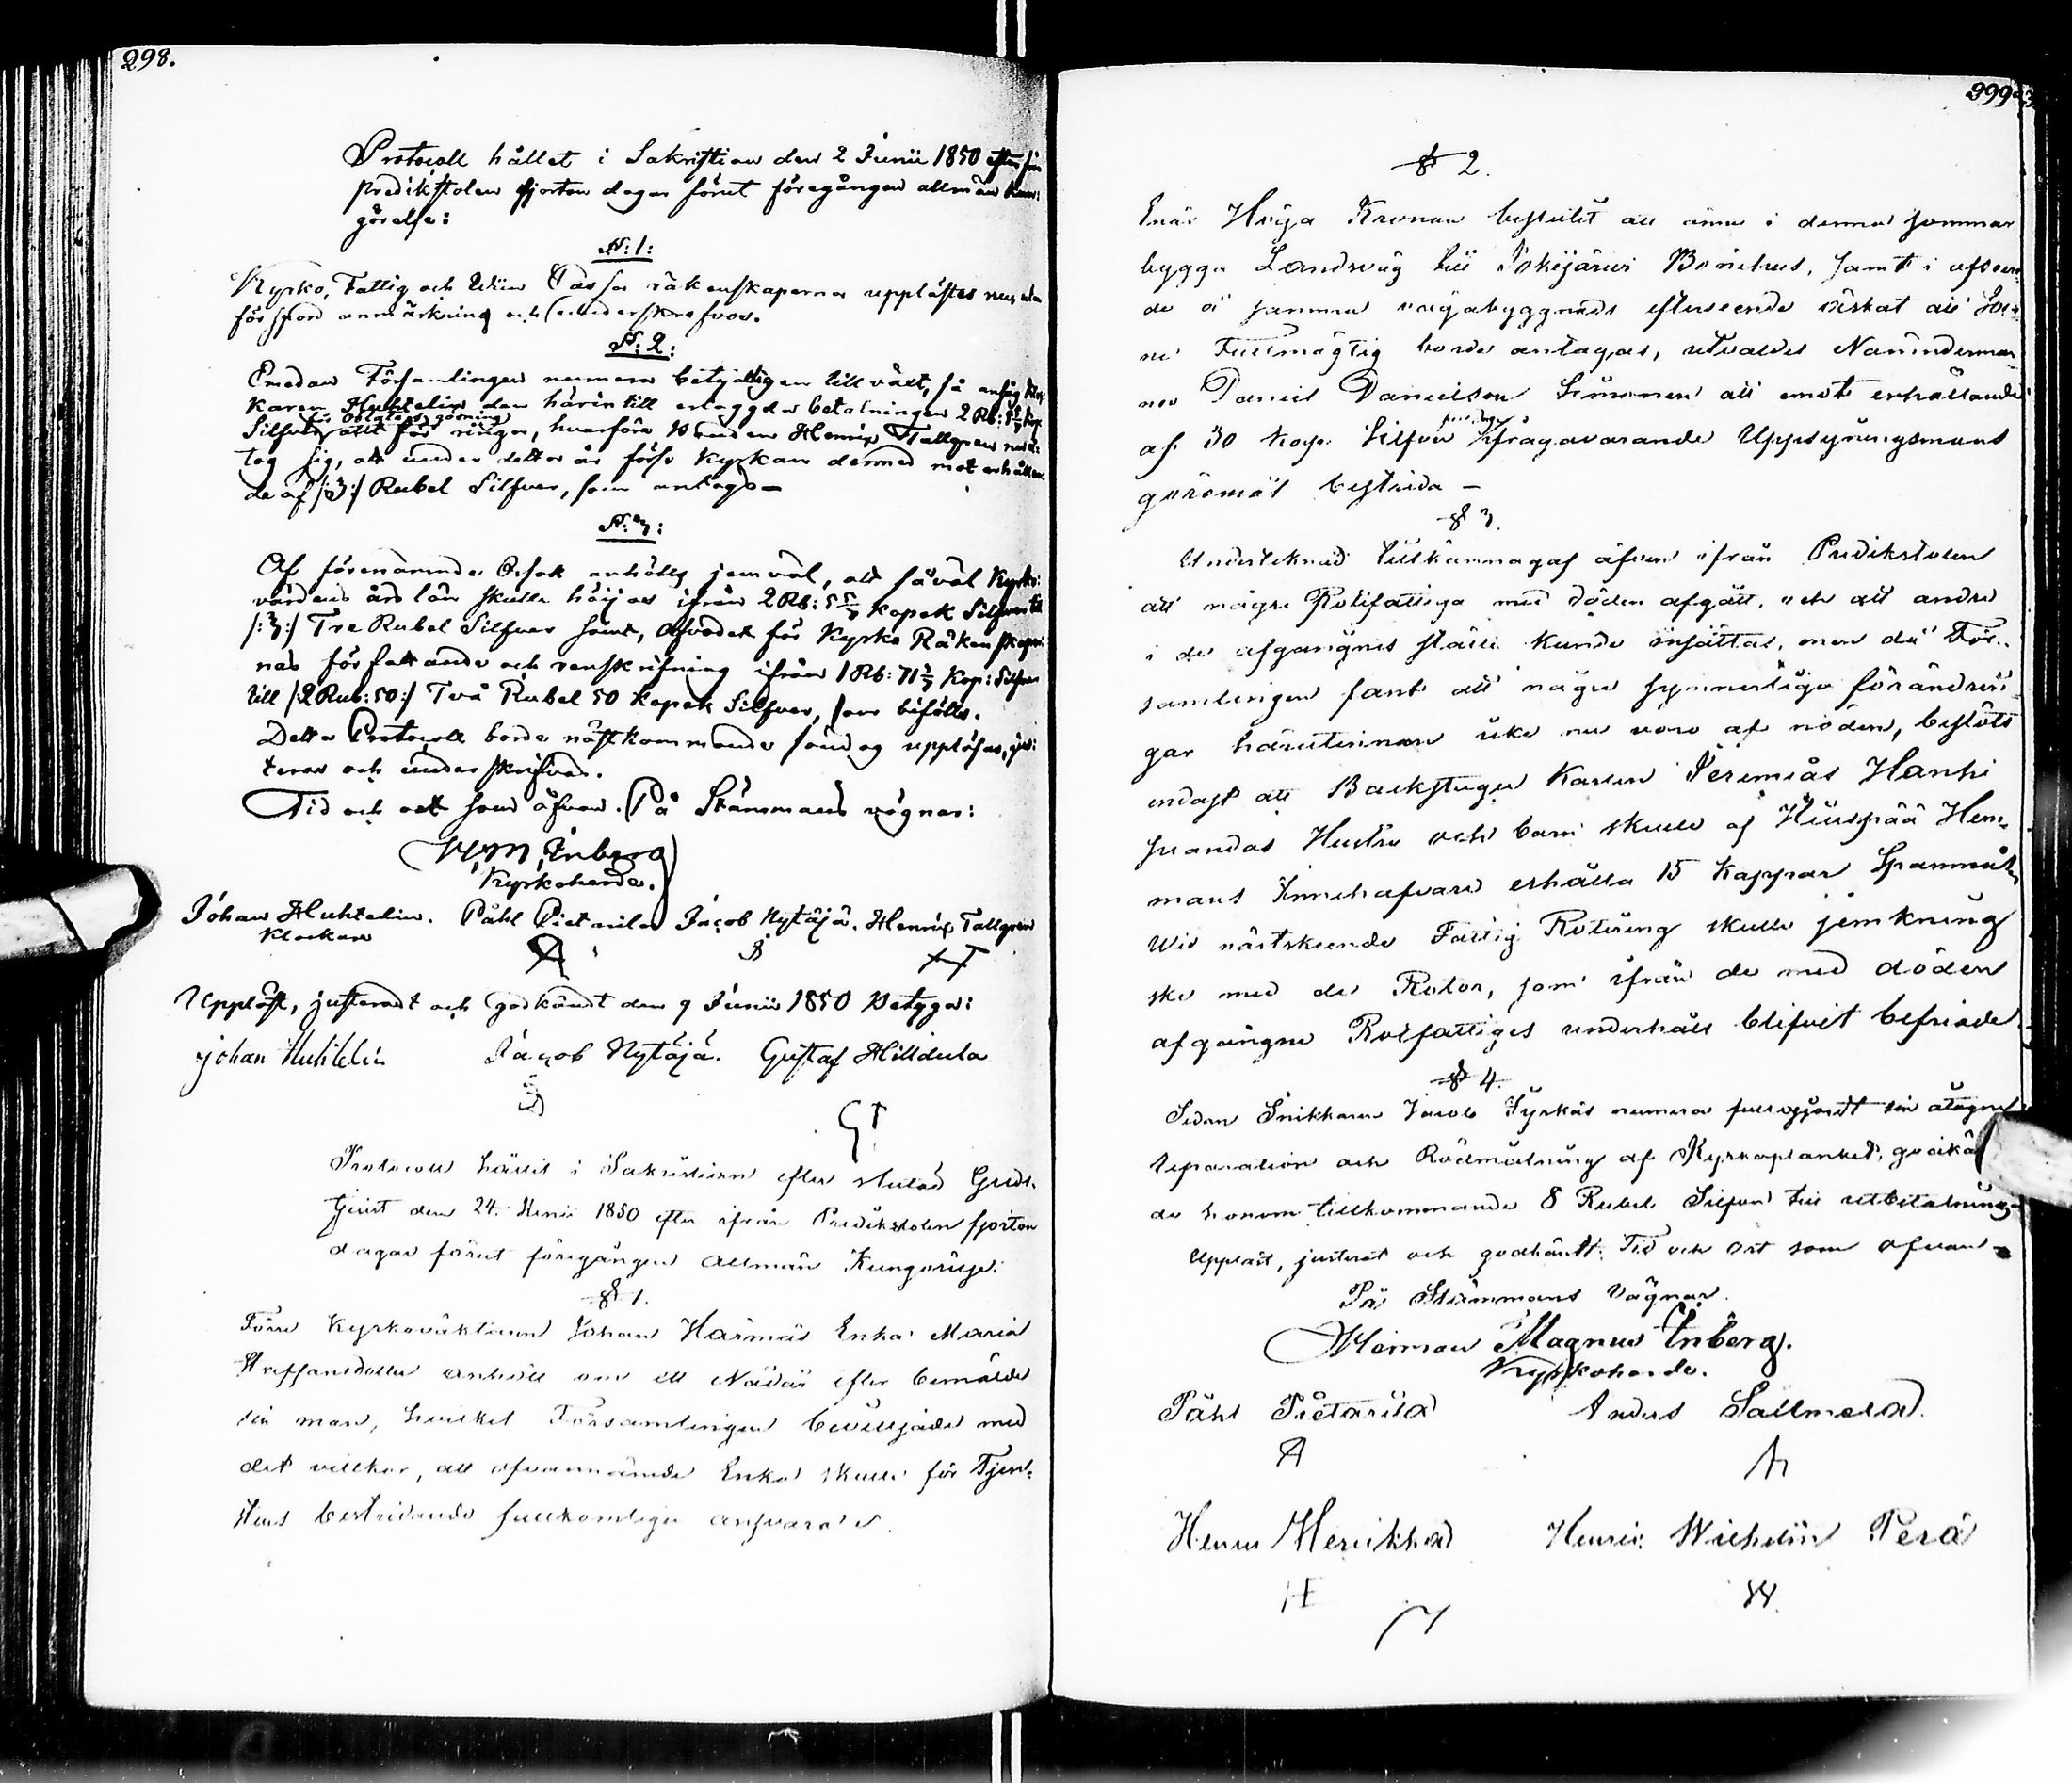 298.
Protocoll hållet i Sakristian den 2 Junii 1850 efter ifrån
predikstolen fjorton dagar förut föregången allmän kun¬
görelse:
N: 1:
Kyrko, Fattig och Wiin Cassa räkenskaperna upplästes utan
förspord anmärkning och underskrefvos.
N: 2:
Emedan Församlingen numera betydligen till växt, så ansåg Kloc¬
karen Huhtelin den härintill erlaggda betalningen 2 Rb:
Silfver allt för ringa, hvarföre Bonden Henrix Tallgren
tog sig, att under detta år förse Kyrkan dermed mot erhållan¬
de af /:3:/ Rubel Silfver, som antogs –
N: 3:
Af förenämnde Orsak anhölls jemväl, att såväl Kyrko¬
värdens års lön skulle höijas ifrån 2 Rb: 5 5/7 Kopek Silfver till
/:3:/ Tre Rubel Silfver samt, Arfvodet för Kyrko Räkenskaper¬
nas författande och renskrifning ifrån 1 Rb: 71 3/7 Kop: Silfver
till /:2 Rub: 50:/ Två Rubel 50 Kopek Silfver, som bifölls.
Detta Protocoll borde nästkommande söndag uppläsas, jus¬
teras och underskrifvas.
Tid och ort som ofvan. På Stämmans vägnar:
H, M, Inberg
Kyrkoherde.
Johan Huhtelin. Påhl Pietarila Jacob Nytäjä. Henrix Tallgren
Klockare
Uppläst, justeradt och godkändt den 9 Junii 1850 Betyga:
Johan Huhtelin Jacob Nytäjä. Gustaf Hilldula
Protocoll hållit i Sakristian efter slutad Guds¬
tjenst den 24. Junii 1850 efter ifrån Predikstolen fjorton
dagar förut föregången allmän Kungörelse.
§ 1.
Förre Kyrkoväktaren Johan Harmäs Enka Maria
Steffansdotter anhöll om ett Nådår efter bemälde
sin man, hvilket Församlingen beviljade med
det villkor, att ofvannämde Enka skulle för Tjen¬
stens bestridande fullkomligen ansvara.
399
§ 2.
Enär Höga Kronan beslutit att ännu i denna sommar
bygga Landsväg till Pokijärwi Bönehus, samt i afseen¬
de å samma vägabyggnads efterseende äskat att
Fullmägtig borde antagas, utvaldes Nämndeman¬
nen Daniel Danielson Simonen att emot erhållande
af 30 Kop. Silfver ifrågavarande Uppsyningsmans
göromål bestrida –
§ 3.
Undertecknad tillkännagaf äfven ifrån Predikstolen
att några Rotfattiga med döden afgått, och att andre
i de afgångnes ställe kunde insättas, men då För¬
samlingen fant att några synnerliga förändrin¬
gar häruti icke nu voro af nöden, beslöts
endast att Backstugu Karlen Jeremias Hanhi
Hustru och barn skulle af Hiuspää Hem¬
mans Innehafvare erhålla 15 Kappar Spannmål
Wid nästskeende Fattig Rotering skulle jemkning
ske med de Rotor, som ifrån de med döden
afgångne Rotfattiges underhåll blifvit befriade
§ 4.
Sedan Snikkaren Jacob Tyrkäs numera fullgjordt sin åtagne
Reparation och Rödmålning af Kyrkoplanket,
de honom tillkommande 8 Rubel Silfver till utbetalning.
Uppläst, justerat och godkändt. Tid och Ort som ofvan
På Stämmans Vägnar.
Herman Magnus Inberg.
Kyrkoherde.
Påhl Pietarila Anders Sallmela
Henric Wilhelm Perä